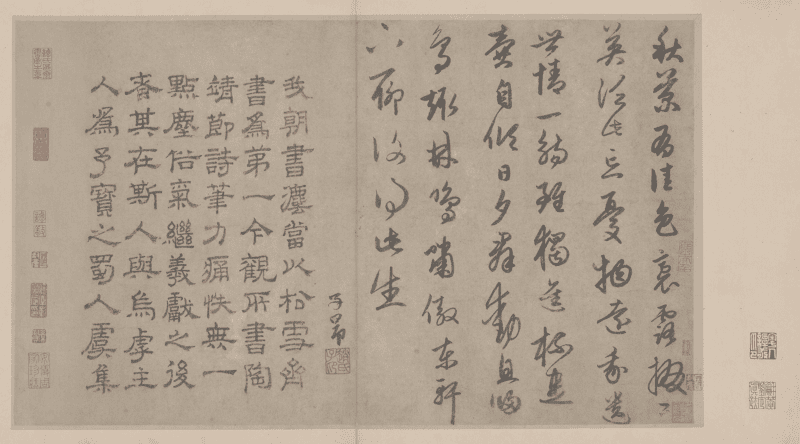 秋菊有佳色裛露掇其
英汎此忘憂物遠我遺
世情一觴雖獨進杯盡
壺自傾日夕群動息歸
鳥趨林鳴嘯傲東軒
下聊復得此生
子昂
我朝書灋當以松雪齋
書爲第一今觀所書陶
靖節詩筆力痛快無一
點塵俗氣繼羲獻之後
者其在斯人與烏虖主
人爲予寶之蜀人虞集